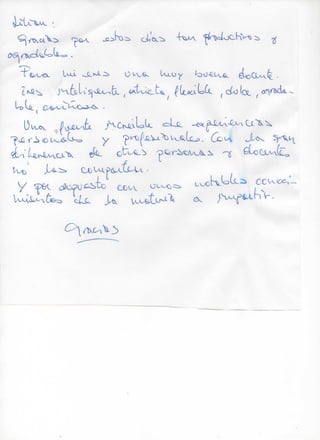 Lilian:
Gracias por estos días tan productivos y
agradables.
Para mi eres una muy buena docente.
Eres inteligente, estricta, flexible, dulce, agrada-
ble, cariñosa.
Una fuente increíble de experiencias
personales y profesionales. Con la gran
diferencia de otras personas y docentes
no las comparten.
Y por supuesto con unos notables conoci-
mientos de la materia a impartir.
Gracias